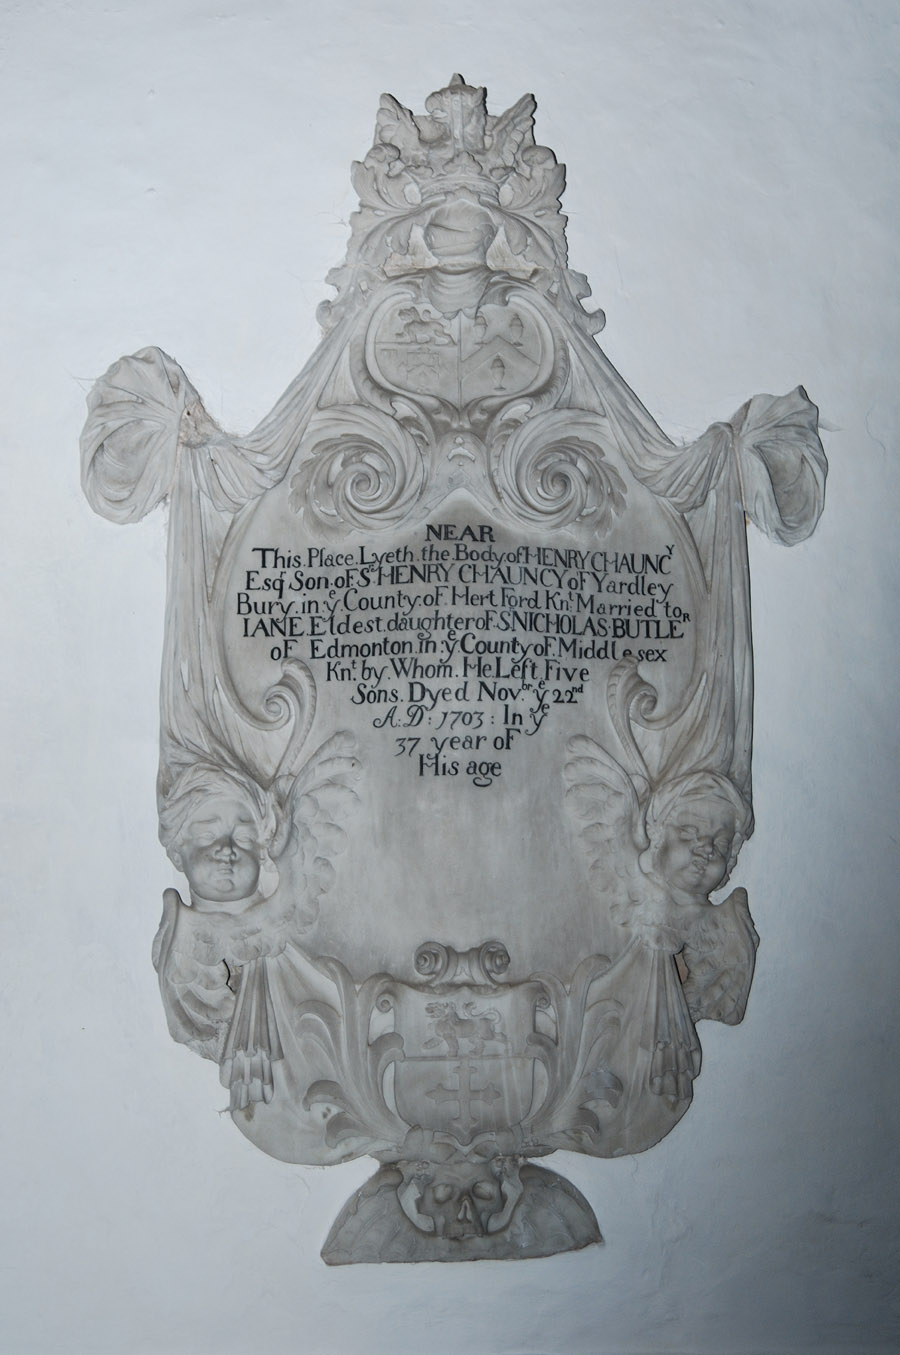 NEAR
This.Place.Lyeth.the.Body.of HENRY CHAUNCʸ
Esqʳ Son.of.Sʳ HENRY CHAUNCY of Yardley
Bury.in.yᵉ County of. Hert Ford Knᵗ. Married to
IANE Eldest.daughter oF Sʳ NICHOLAS BUTLEᴿ
oF Edmonton.in.yᵉ County oF. Middlesex
Knᵗ. by Whom. He. Left Five
Sons. Dyed Novᵇʳ yᵉ 22ⁿᵈ
A:D: 1703: In yᵉ
37 year oF
His age